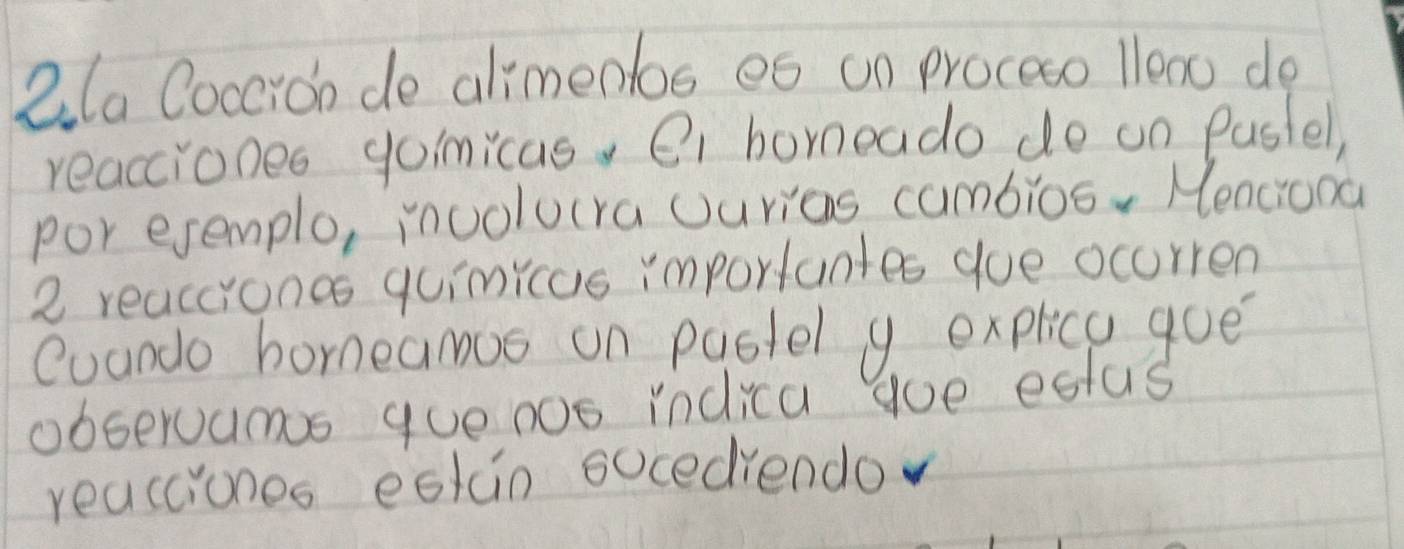 2. La Cocción de alimentos es un proceso lleno de
reacciones químicas. El horneado de un Pastel,
por ejemplo, involucra varios cambios. Menciona
2 reacciones químicas importantes que ocurren
Cuando horneamos un pastel y explica qué
observamos que nos indica que estas
reacciones están sucediendo.